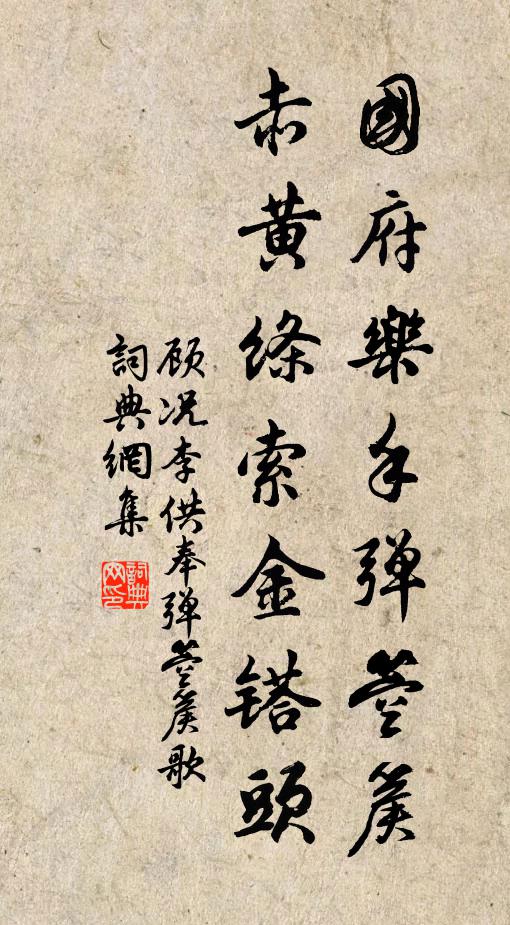 國府樂手弹箜篌
赤黄絛索金鎝頭
顾况李供奉弹箜篌歌
詞典網集
詞典网印